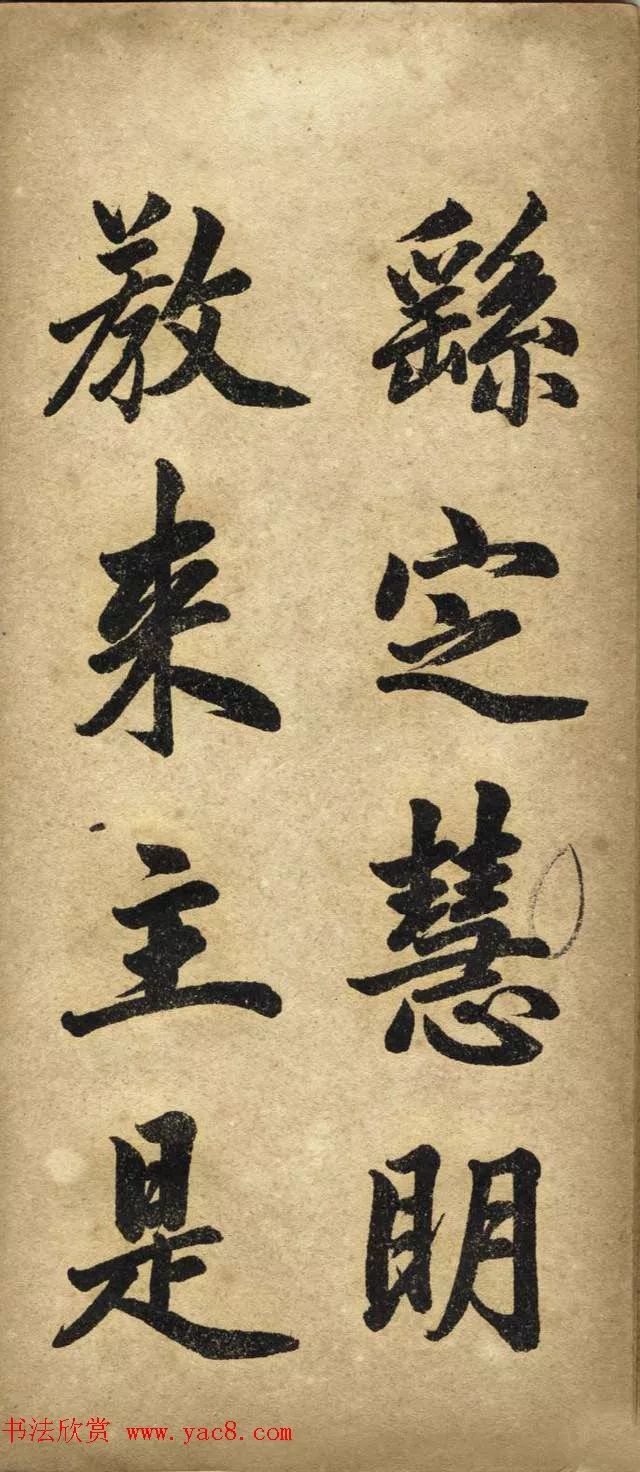 繇定慧明
教來主是
书法欣赏 www.yac8.com